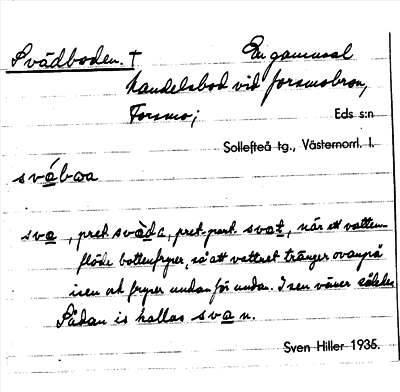 Svädboden. † En gammal
handelsbod vid Forsmobron,
Forsmo;
Eds s:n
Sollefteå tg., Västernorrl. l.
svábωa
sva, pret. svàda, pret.part. svat, när ett vatten-
flöde bottenfryser, så att vattnet tränger ovanpå
isen och fryser undan för undan. Isen växer således
Sådan is kallas svan.
Sven Hiller 1935.